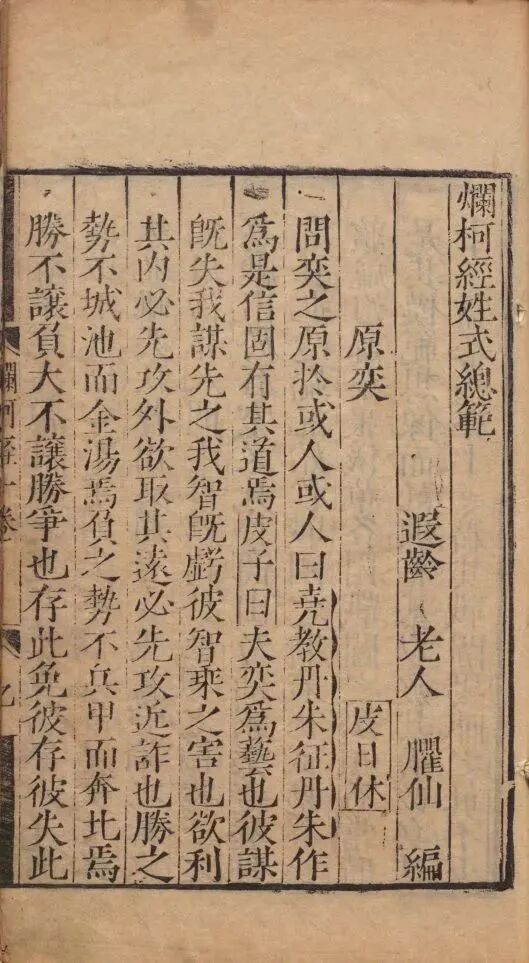 爛柯經姓式總範
遐齡老人臞仙編
原奕 皮日休
問奕之原扵或人或人曰堯教丹朱征丹朱作
爲是信固有其道焉皮子曰夫奕爲藝也彼謀
旣失我謀先之我智旣虧彼智乘之害也欲利
其内必先攻外欲取其遠必先攻近詐也勝之
勢不城池而金湯焉負之勢不兵甲而奔北焉
勝不讓負大不讓勝爭也存此免彼存彼失此
爛柯經一卷
九